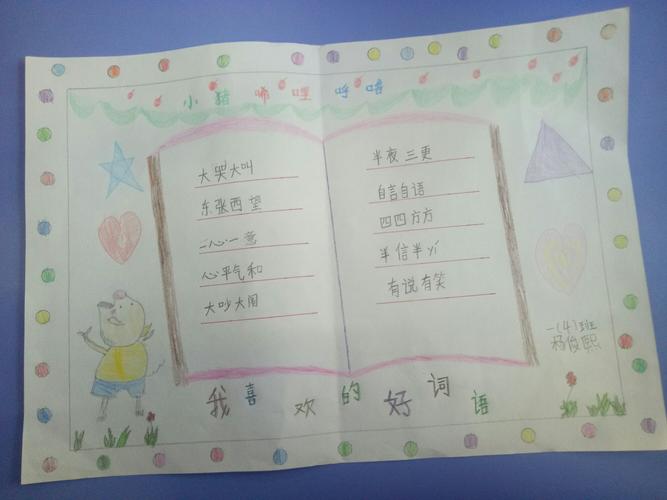 小猪唏哩呼噜
大哭大叫
东张西望
一心一意
心平气和
大吵大闹
半夜三更
自言自语
四四方方
半信半yí
有说有笑
一(4)班
杨俊熙
我喜欢的好词语